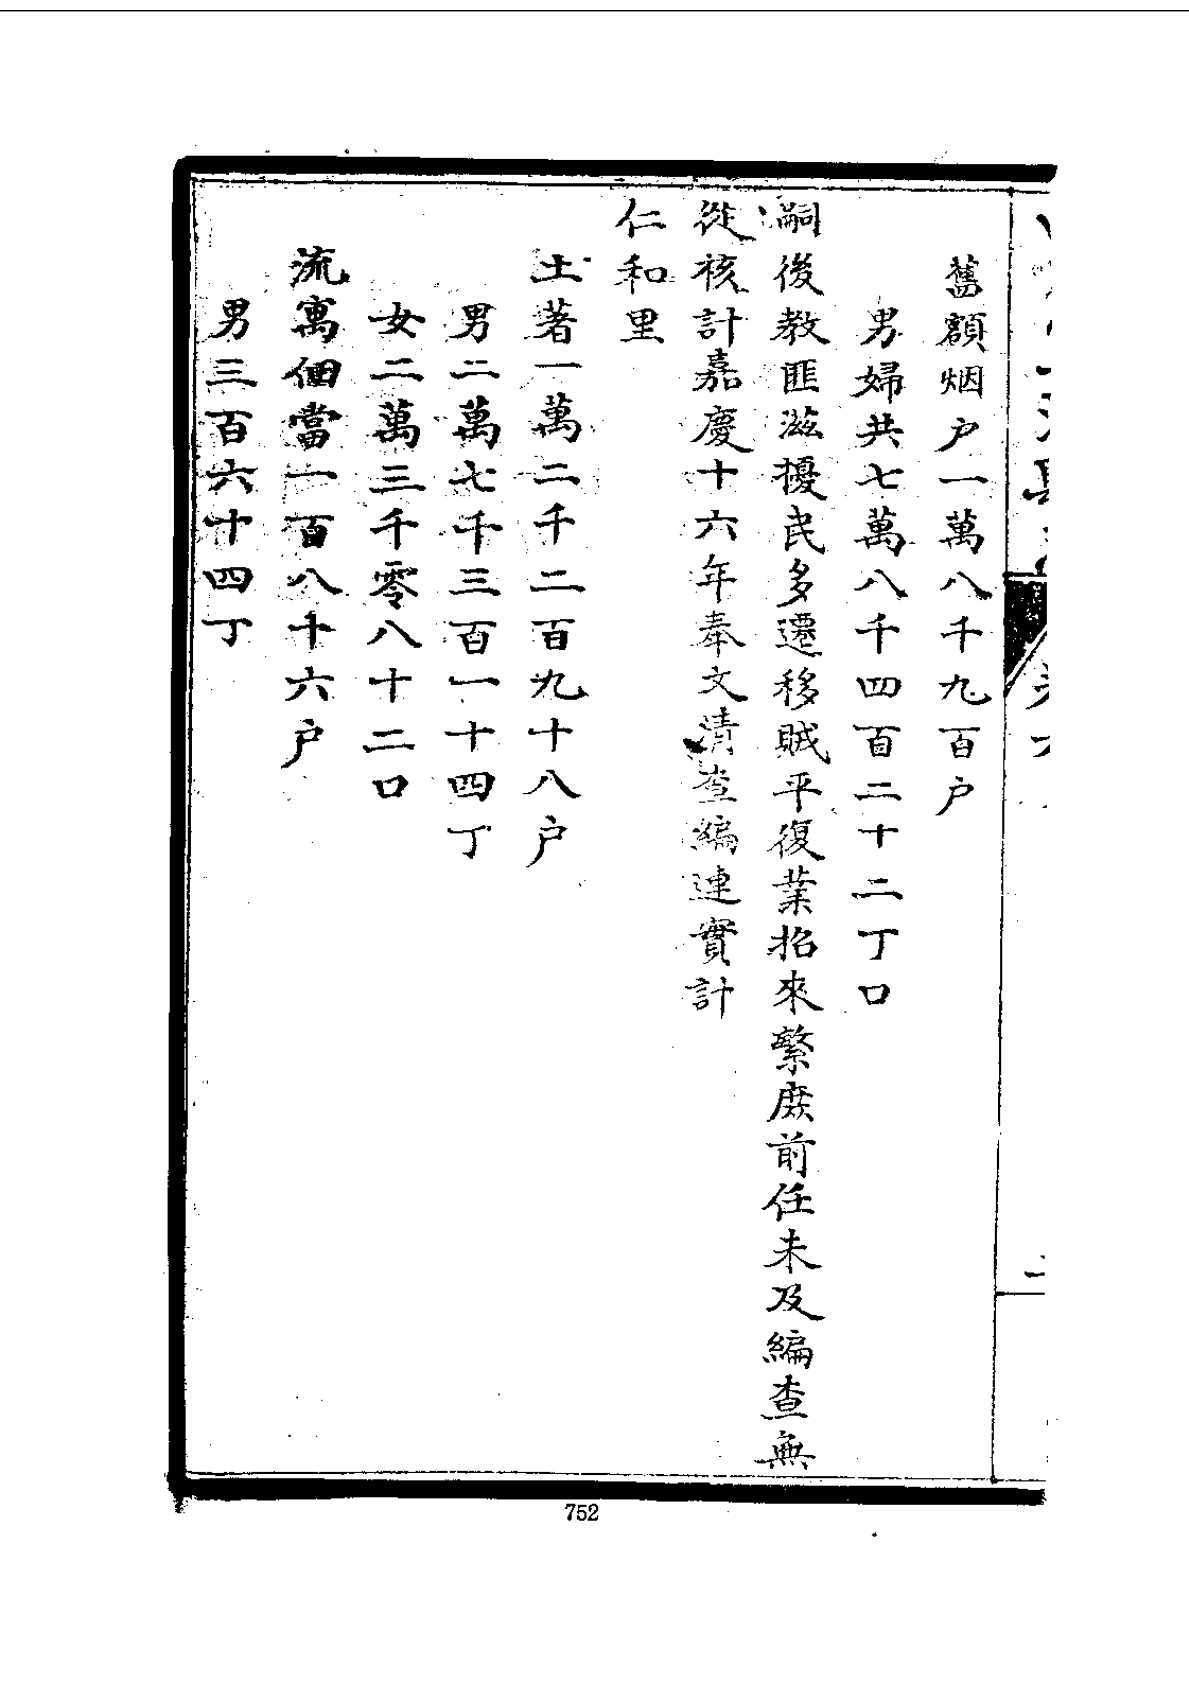 舊額烟户一萬八千九百户
男婦共七萬八千四百二十二丁口
嗣後教匪滋擾民多遷移賊平復業招來繁庶前任未及編查無
從核計嘉慶十六年奉文清查編連實計
仁和里
土著一萬二千二百九十八户
男二萬七千三百一十四丁
女二萬三千零八十二口
流寓佃當一百八十六户
男三百六十四丁
752